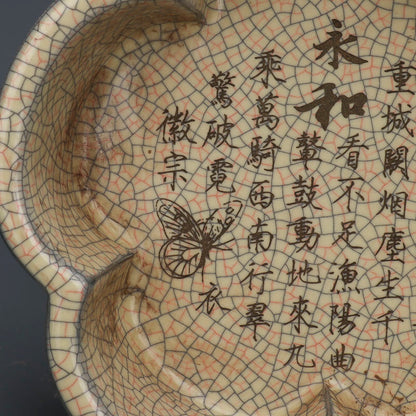 重城闕烟塵生千
永和
看不足漁陽曲
鼙鼓動地來九
乘萬騎西南行羣
驚破霓衣
徽宗